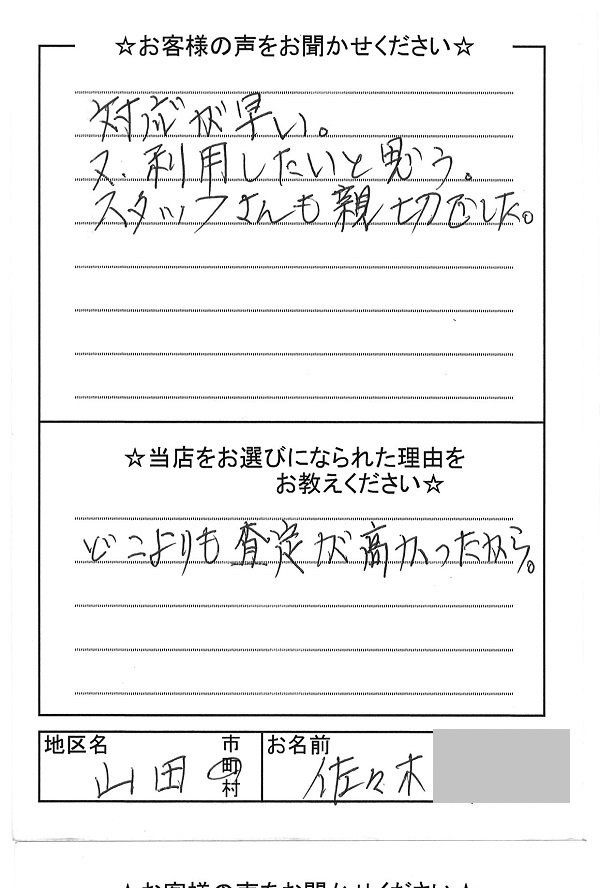 ☆お客様の声をお聞かせください☆
対応が早い。
又、利用したいと思う。
スタッフさんも親切でした。
☆当店をお選びになられた理由を
お教えください☆
どこよりも査定が高かったから。
地区名 市 お名前
山田 町 佐々木
村
☆お客様の声をお聞かせください☆